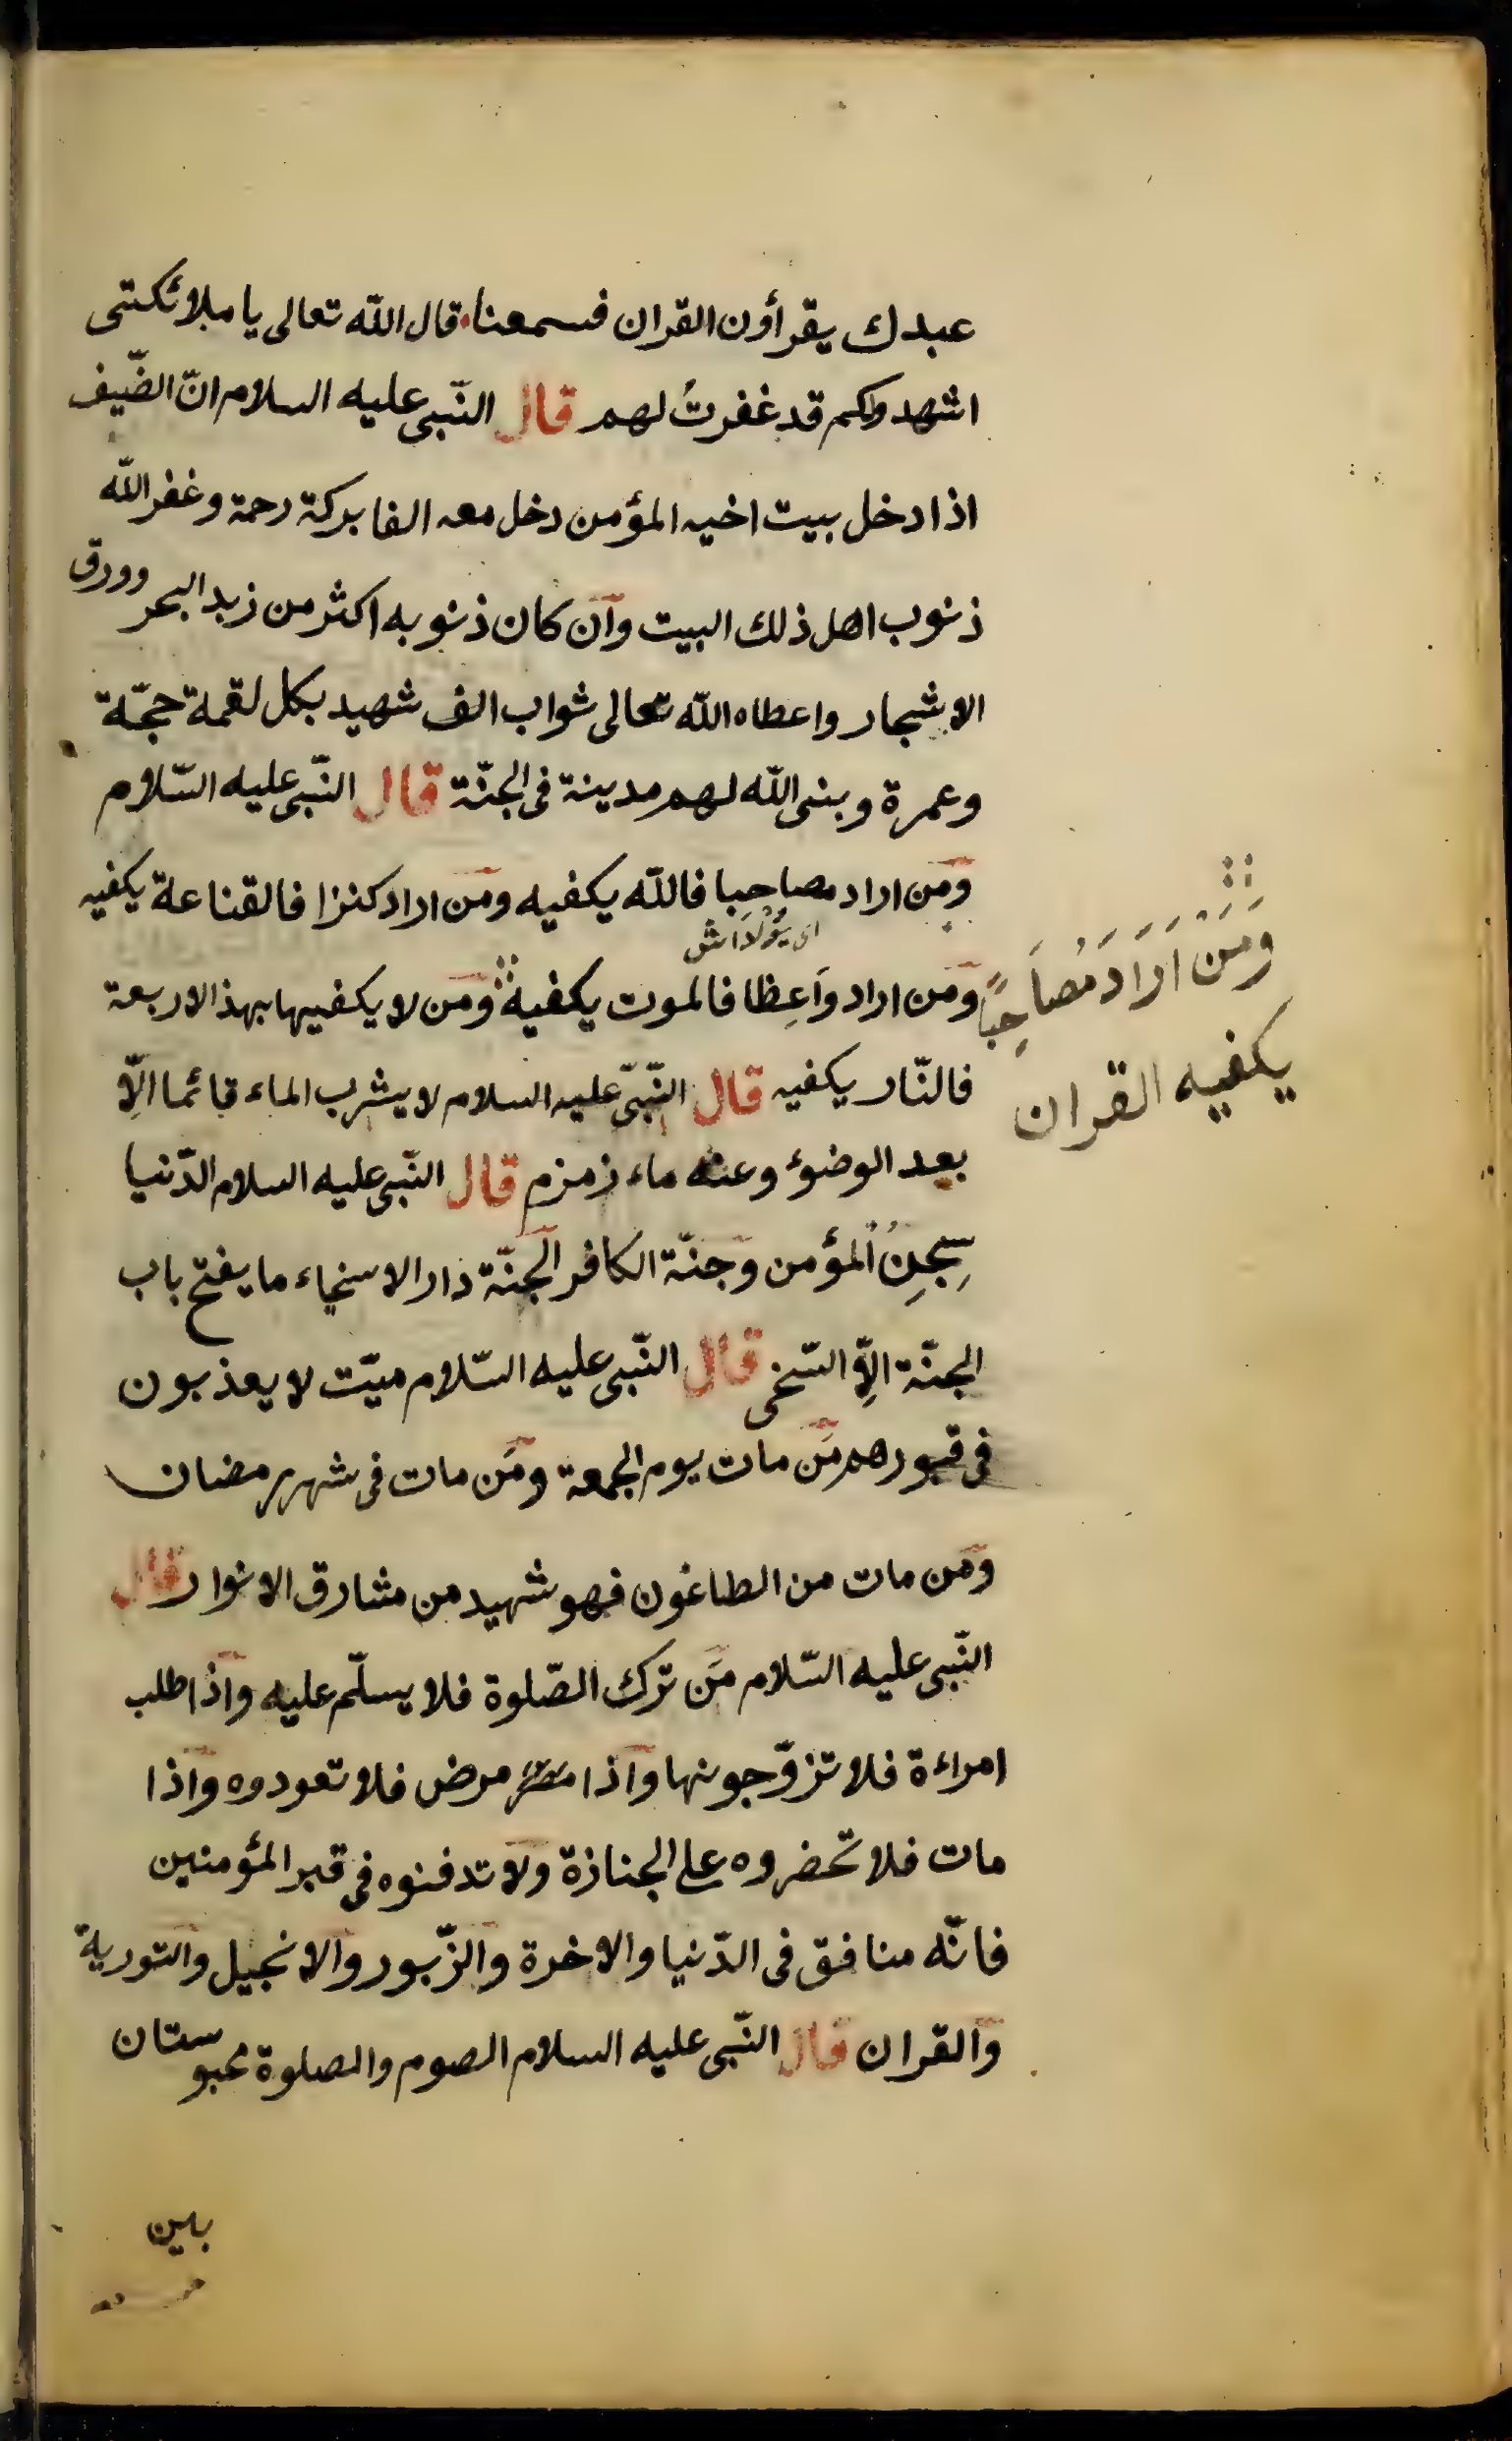 عبدك يقرأون القران فسمعنا قال الله تعالى يا ملائكتى
اشهدوكم قد غفرتُ لهم قال النّبى عليه السلام انّ الضّيف
اذا دخل بيت اخيه المؤمن دخل معه الفا بركة رحمة وغفر الله
ذنوب اهل ذلك البيت وان كان ذنوبه اكثر من زبد البحر وورق
الاشجار واعطاه الله تعالى ثواب الف شهيد بكل لقمة حجّة
وعمرة وبنى الله لهم مدينة فى الجنّة قال النّبى عليه السّلام
ومن اراد مصاحبا فالله يكفيه ومن اراد كنزا فالقناعة يكفيه
ومن اراد وَاعِظا فالموت يكفيه ومن لا يكفيها بهذ الاربعة
فالنّار يكفيه قال النّبىّ عليه السلام لا يشرب الماء قائما الاّ
بعد الوضوء وعنه ماء زمزم قال النّبى عليه السلام الدّنيا
سِجِنُ المؤمن وجنّة الكافر الجنّة دار الاسخياء ما يفتح باب
الجنّة الاّ السّخى قال النّبى عليه السّلام ميّت لا يعذبون
فى قبورهم مَن مات يوم الجمعة ومَن مات فى شهر رمضان
ومَن مات من الطاغون فهو شهيد من مشارق الانوار قال
النّبى عليه السّلام مَن ترك الصّلوة فلا يسلّم عليه واذا طلب
امراءة فلا تزوّجونها واذا مرض فلا تعودوه واذا
مات فلا تحضروه على الجنازة ولا تدفنوه فى قبر المؤمنين
فانّه منافق فى الدّنيا والاخرة والزّبور والانجيل والتورية
والقران قال النّبى عليه السلام الصوم والصلوة محبوستان
بين
ومَنْ اَرَادَ مُصَاحِبًا
يكفيه القران